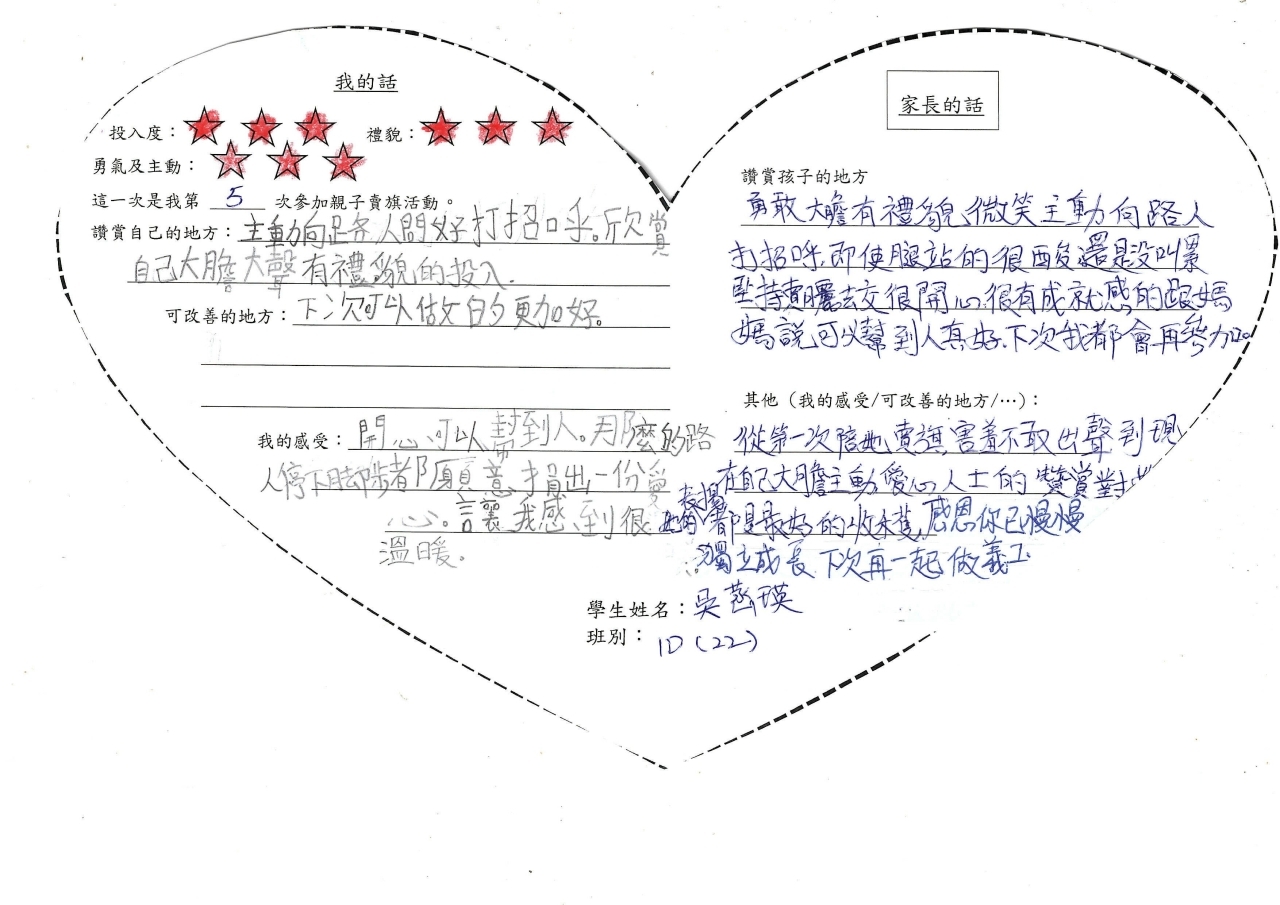 我的話
投入度：
禮貌：
勇氣及主動：
這一次是我第 5 次參加親子賣旗活動。
讚賞自己的地方：主動向足各人問好打招呼。欣賞
自己大膽大聲有禮貌的投入.
可改善的地方：下次可以做的更加好。
我的感受：開心可以幫到人。那麼的路
人停下腳步都願意捐出一份愛
心。讓我感到很
溫暖。
家長的話
讚賞孩子的地方
勇敢大膽有禮貌、微笑主動向路人
打招呼.即使腿站的很酸還是沒叫累
堅持賣曬去交很開心很有成就感的跟媽
媽說可以幫到人真好.下次我都會再參加。
其他（我的感受/可改善的地方/…）：
從第一次陪她賣旗害羞不敢出聲到現
在自己大膽主動,愛心人士的讚賞對她
表揚
都是最好的收穫,感恩你已慢慢
獨立成長.下次再一起做義工
學生姓名：吳 瑛
班別：1D (22)